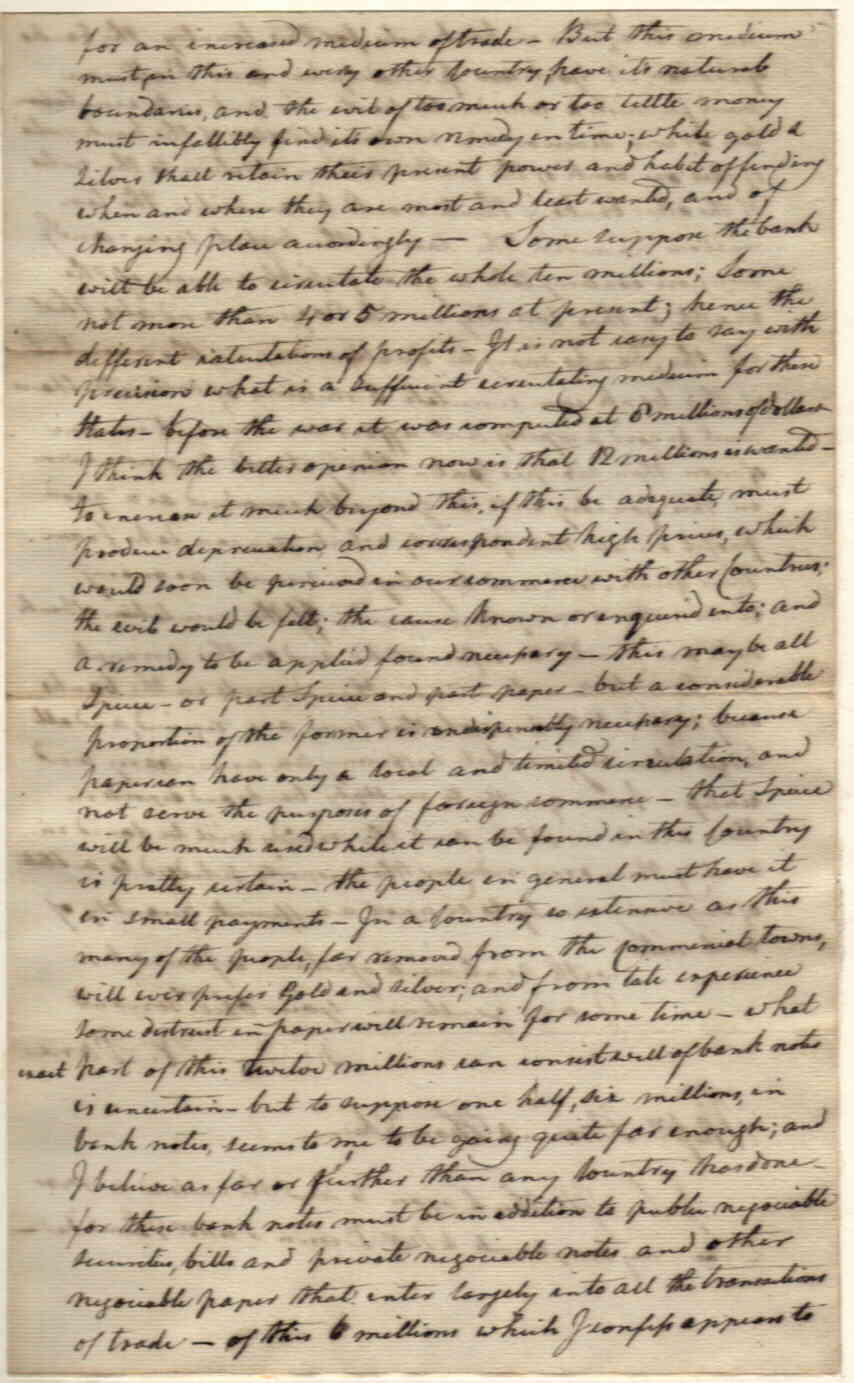 for an increased medium of trade – But this medium
must, in this and every other Country, have its natural
boundaries, and the evil of too much or too little money
must infallibly find its own remedy in time; while gold &
silver shall retain their present power and habit of finding
when and where they are most and least wanted, and of
changing place accordingly — Some suppose the bank
will be able to circulate the whole ten millions; Some
not more than 4 or 5 millions at present; hence the
different calculations of profits – It is not easy to say with
precision what is a sufficient circulating medium for these
States – before the war it was computed at 8 millions of dollars
I think the better opinion now is that 12 millions is wanted –
to increase it much beyond this, if this be adequate, must
produce depreciation and correspondent high prices, which
would soon be perceived in our commerce with other Countries;
the evil would be felt; the cause known or enquired into; and
a remedy to be applied found necessary – this may be all
Specie – or part Specie and part paper – but a considerable
proportion of the former is indispensably necessary; because
paper can have only a local and limited circulation, and
not serve the purposes of foreign commerce – that Specie
will be much used while it can be found in this Country
is pretty certain – the people in general must have it
in small payments – In a Country so extensive as this
many of the people, far removed from the Commercial towns,
will ever prefer Gold and silver; and from late experience
some distrust in paper will remain for some time – what
exact part of this twelve millions can consist well of bank notes
is uncertain – but to suppose one half, six millions, in
bank notes, seems to me to be going quite far enough; and
I believe as far or further than any Country has done –
for these bank notes must be in addition to public negociable
securities, bills and private negociable notes and other
negociable paper that enter largely into all the transactions
of trade — of this 6 millions which I confess appears to